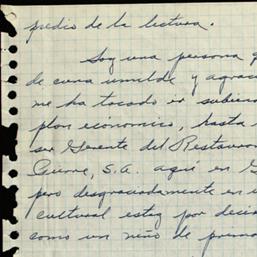 predio de la lectura.
Soy una persona q
de cuna umilde y agrac
me ha tocado ir subien
plan economico, hasta
ser Gerente del Restauran
S.A. aquí en G
pero desgraciadamente en
cultural estoy por deci
como un niño de prima